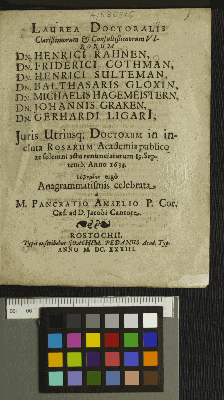 LAUREA DOCTORALIS
Clarissimorum & Consultissimorum VI-
RORUM
DN. HENRICI RAHNEN,
DN. FRIDERICI COTHMAN,
DN. HENRICI SULTEMAN,
DN. BALTHASARIS GLOXIN,
DN. MICHAELIS HAGEMEISTERN,
DN. JOHANNIS GRAKEN,
DN. GERHARDI LIGARI,
Juris Utriusq; DOCTORUM in in-
cluta ROSARUM Academia publico
ac solenni actu renunciatorum 19. Sep-
temb. Anno 1633.
ergò
Anagrammatismis celebrata
à
M. PANCRATIO AMSELIO P. Cor.
Cæs. ad D. Jacobi Cantore.
ROSTOCHII,
Typis exscribebat JOACHIM. PEDANUS Acad. Typ.
ANNO M. DC. XXXIII.